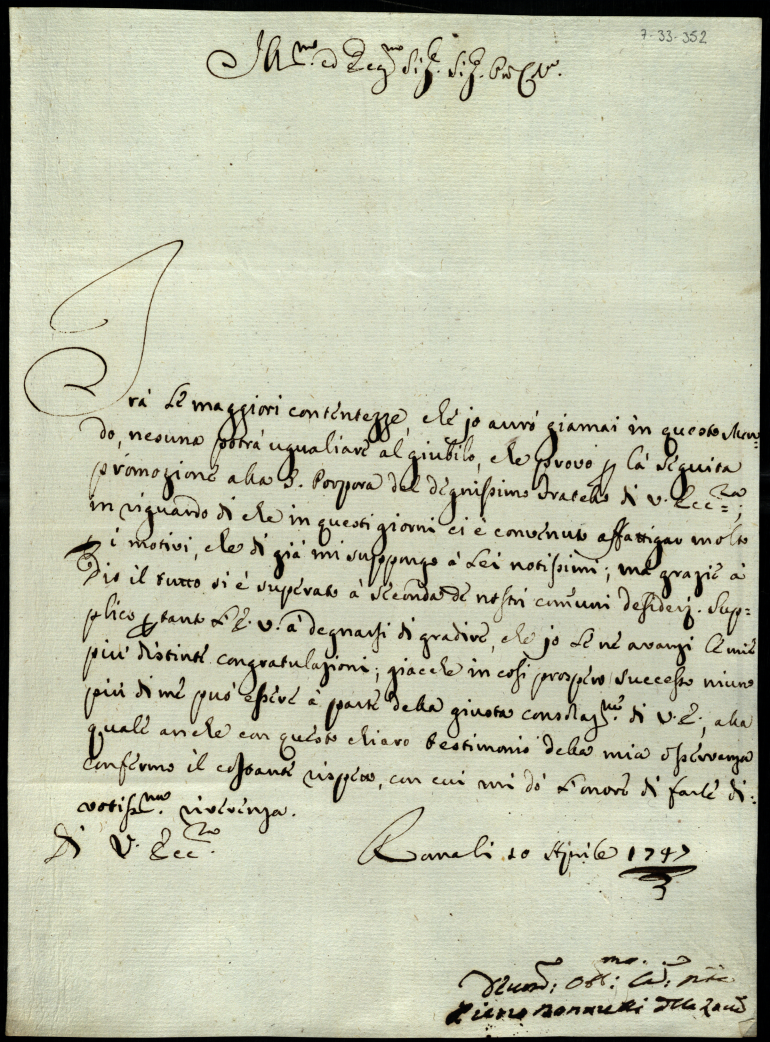 7-33-352
Ill.mo ed Ecc.mo Sig.re Sig.re
Trà le maggiori contentezze, che jo avrò giamai in questo Mon=
do, nesuna potrà ugualiare al giubilo, che provo per la seguita
promozione alla S. Porpora del degnissimo Fratello di V. Ecc.za;
in riguardo di che in questi giorni ci è convenuto affattigar molto
per i motivi, che di già mi suppongo à Lei notissimi; ma grazie à
Dio il tutto si è superato à seconda de nostri comuni desiderj. Sup=
plico per tanto L'E. V. à degnarsi di gradire, che jo le ne avanzi le mie
più distinte congratulazioni; giacche in così prospero successo niuno
più di me può essere à parte della giusta consolaz.ne di V. E., alla
quale anche con questo chiaro testimonio della mia osservanza
confermo il costante rispetto, con cui mi dò l'onore di farle di=
votiss.ma riverenza.
Di V. Ecc.za
10 Aprile 1747